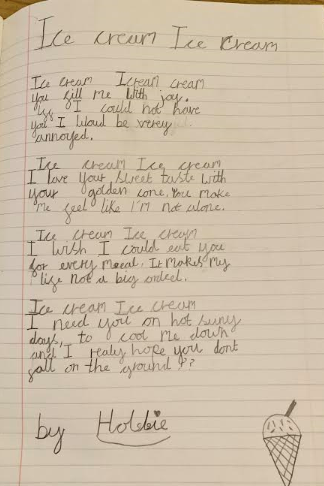 Ice cream Ice cream
Ice cream Icream cream
you fill me with joy.
If I could not have
you I Woud be verey
annoyed.
Ice cream Ice cream
I love your sweet taste with
your golden cone. You make
me feel like I'M not alone.
Ice cream Ice cream
I wish I could eat you
for every meeal. It Makes My
life not a big ordeel.
Ice cream Ice cream
I need you on hot suny
days, to cool me down
and I realy hope you dont
fall on the ground !?
by Hollie